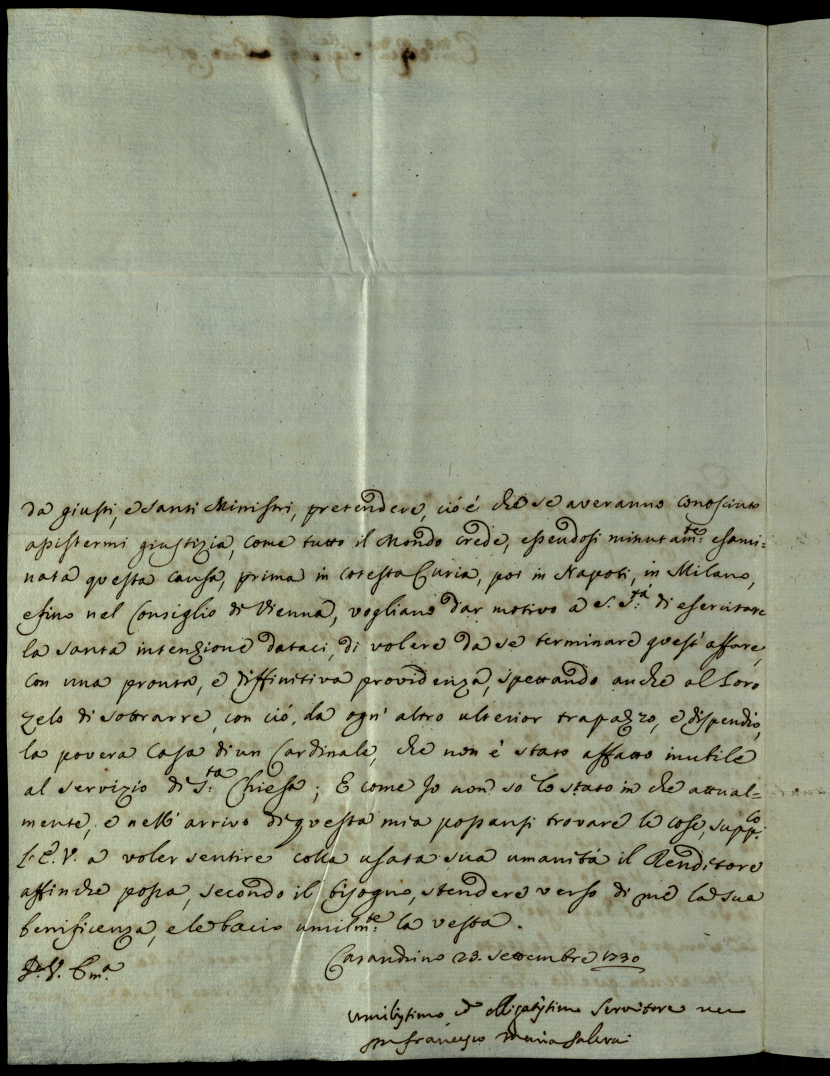 da giusti, e santi Ministri, pretendere, cioé che se averanno conosciuto
assistermi giustizia, come tutto il Mondo crede, essendosi minutam.te esami-
nata questa causa, prima in cotesta Curia, poi in Napoli, in Milano,
e fino nel Consiglio di Vienna, vogliano dar motivo a S. S.tà di esercitare
la santa intenzione dataci, di volere da se terminare quest'affare,
con una pronta, e diffinitiva providenza, spettando anche al loro
zelo di sottrarre, con ció, da ogn'altro ulterior trapazzo, e dispendio,
la povera Casa di un Cardinale, che non é stato affatto inutile
al servizio di S.ta Chiesa; E come Io non so lo stato in che attual-
mente, e nell'arrivo di questa mia possansi trovare le cose, supp.co
l'E.V. a voler sentire colla usata sua umanitá il Renditore
affinche possa, secondo il bisogno, stendere verso di me la sua
benificenza, e le bacio umilm.te la vesta.
Casandrino 23. Settembre 1730
D. V. Em.a
Umilissimo ed Obligatissimo Servitore vero
Francesco Maria